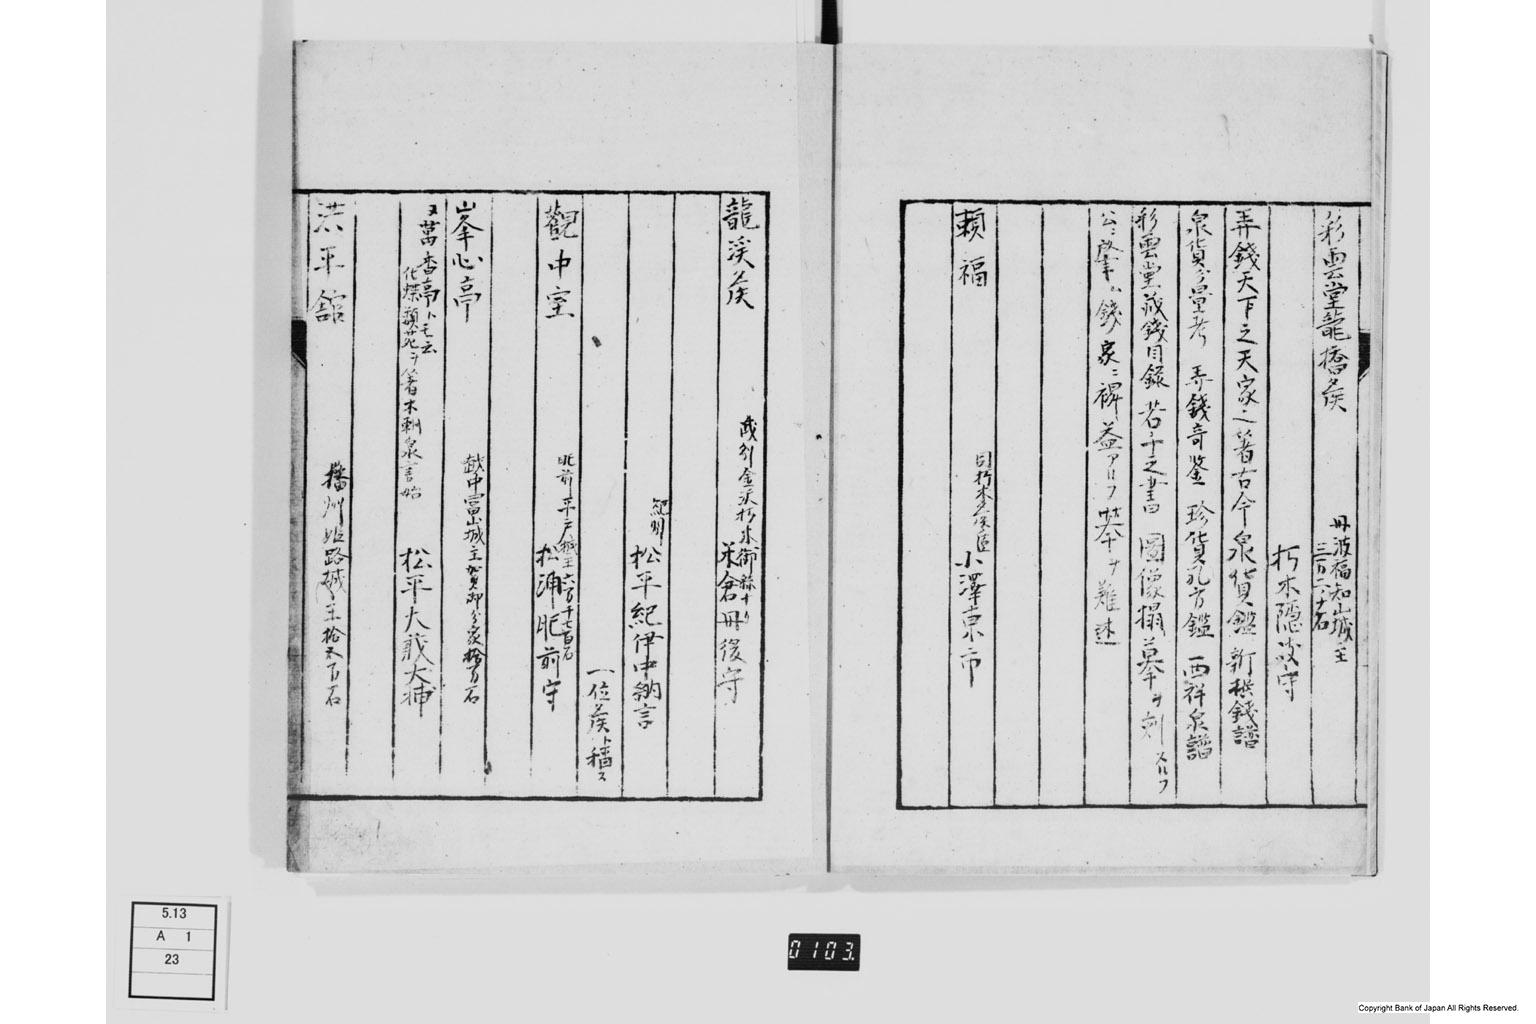 彩雲堂龍橋侯
丹波福知山城主
三万二千石
朽木隠岐守
弄錢天下之大家之著古今泉貨鑑 新撰錢譜
泉貨分量考 弄錢奇鑒 珍貨孔方鑑 西洋泉譜
彩雲堂蔵錢目録 若干之書 圖像搨摹ヲ刻スルフ
公ニ肇ム錢家ニ裨益アルフ 挙ケ難述
頼福
同朽木侯臣
小澤東市
龍渓侯
武列金沢
朽木御縁十り
米倉丹後守
紀州
松平紀伊中納言
一位侯ト稱ス
觀中室
肥前平戸城主六万千七百石
松浦肥前守
峯心亭
越中富山城主加賀御分家拾万石
又萬香亭トモ云
化蝶類苑ヲ著木輌泉言始
松平大蔵大輔
洪平舘
播州姫路城主拾五万石
5.13
A 1
23
0103.
Copyright Bank of Japan All Rights Reserved.